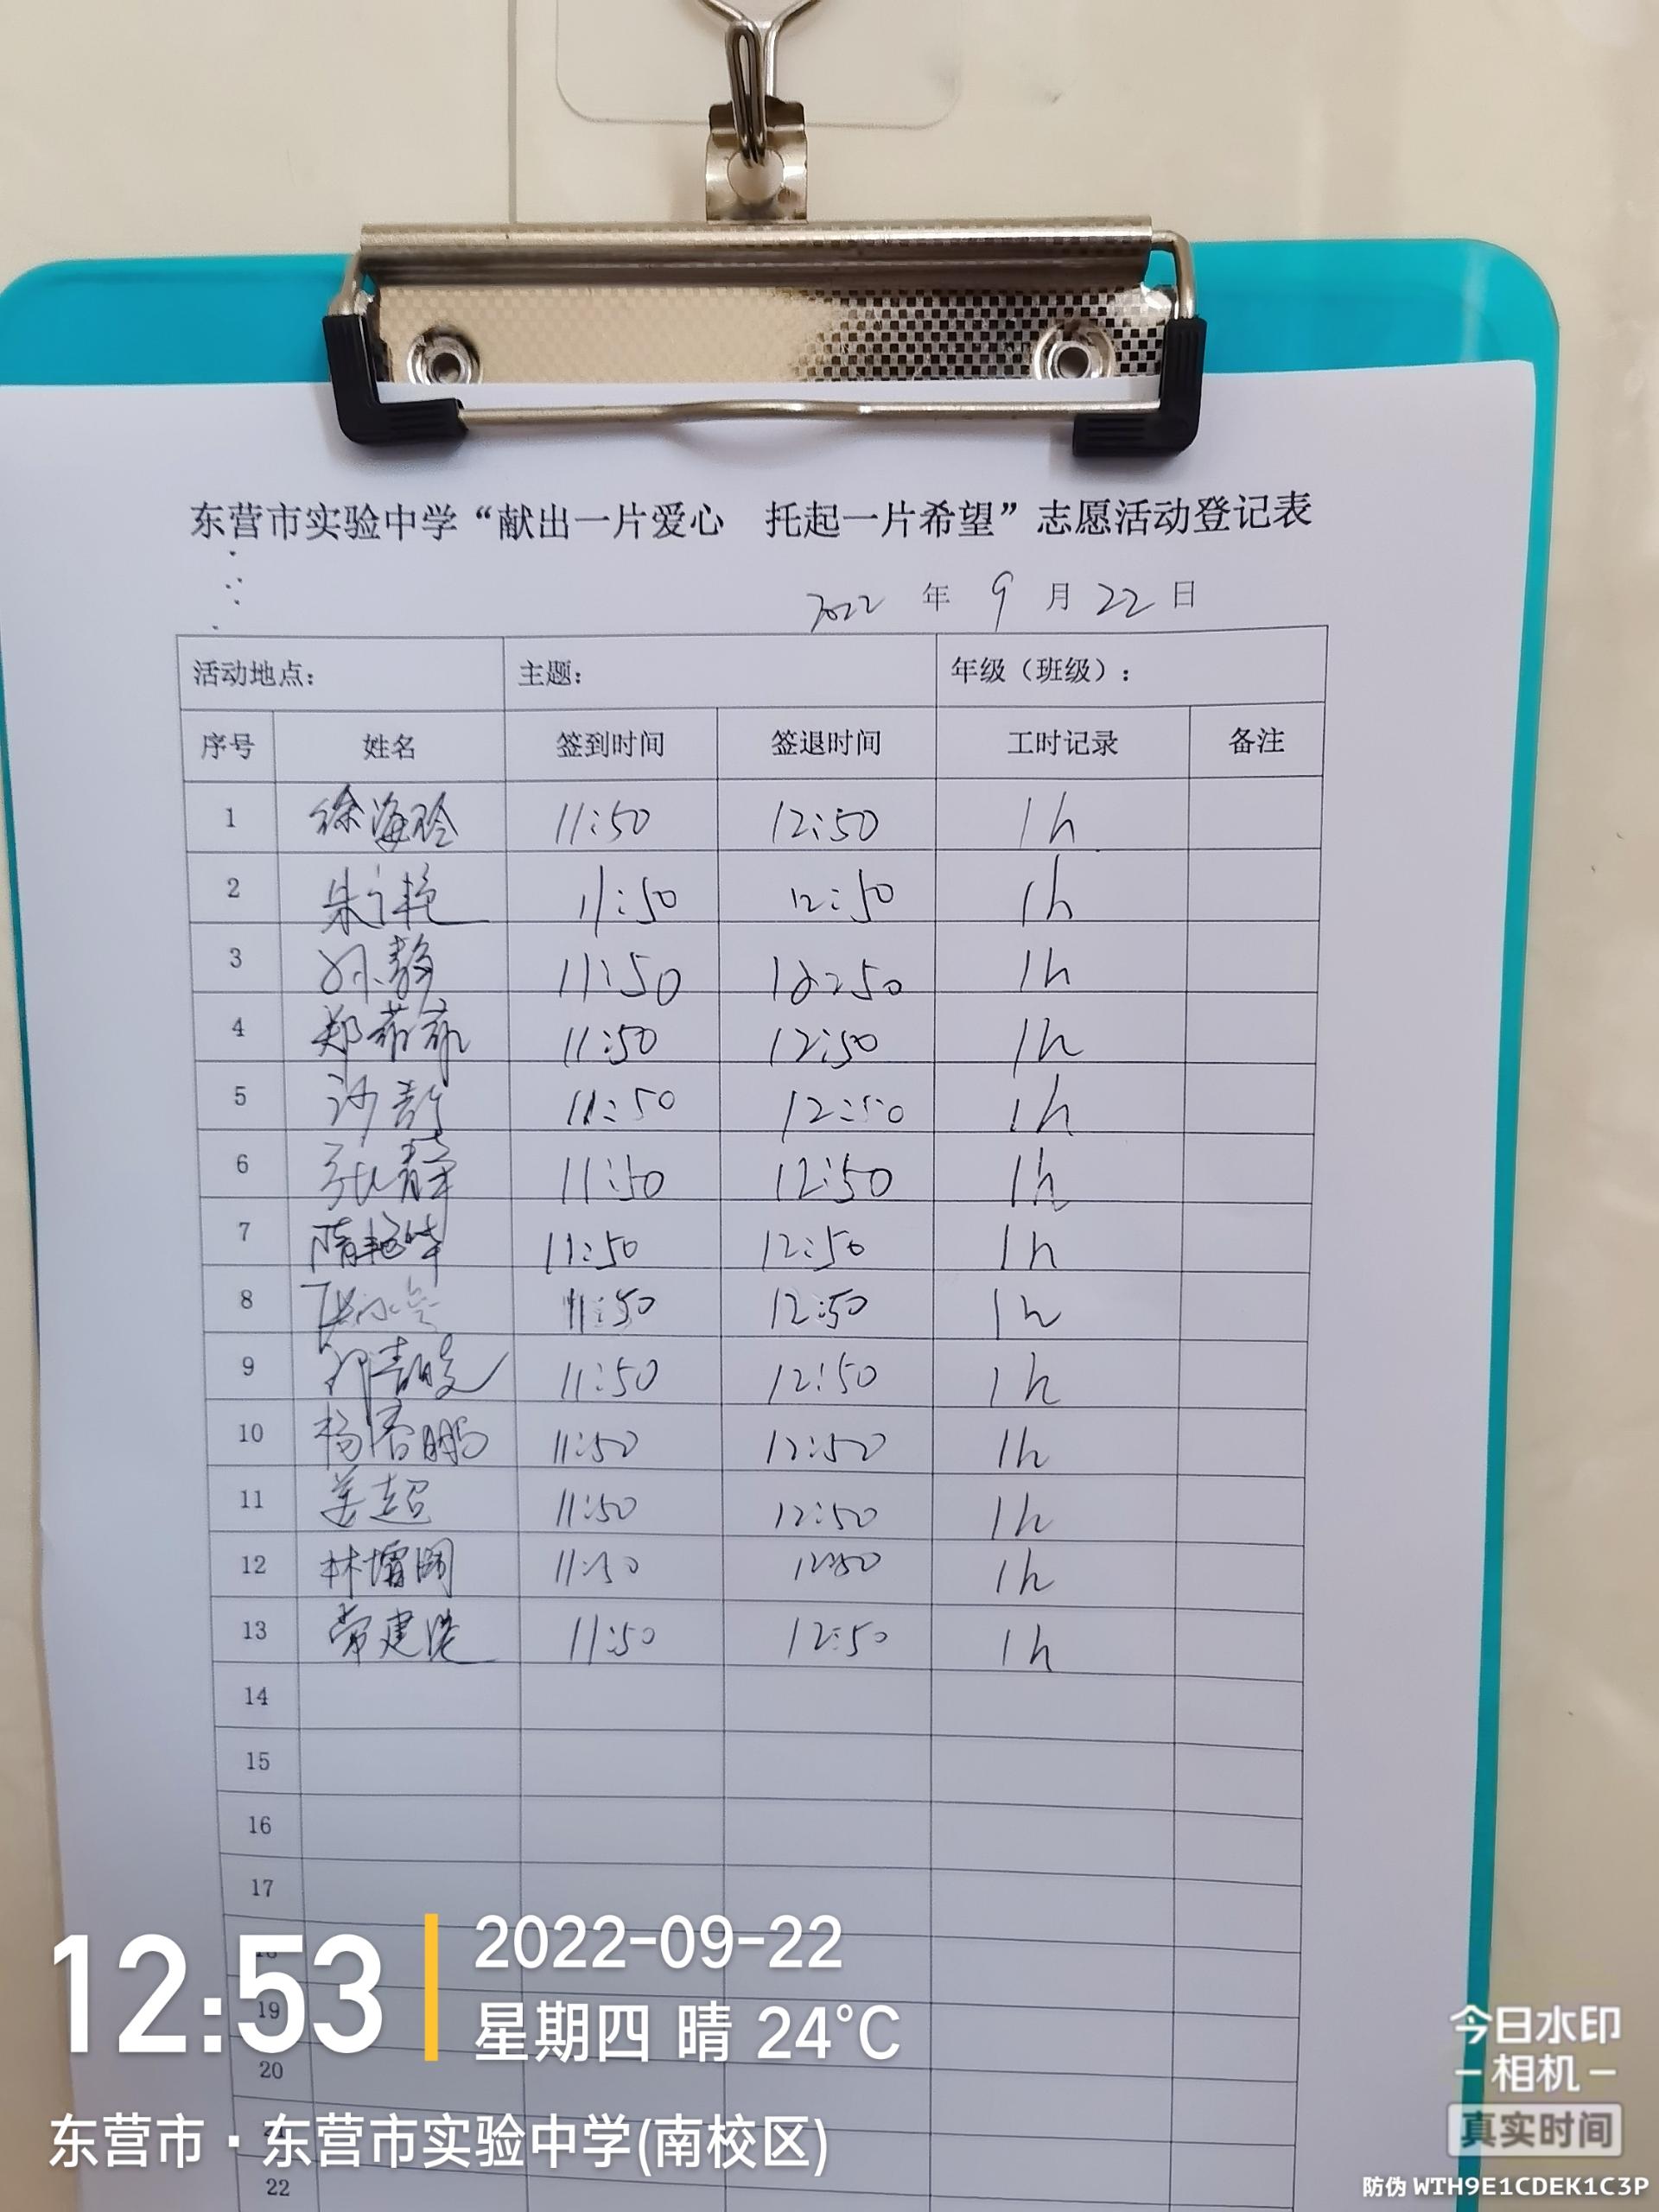 东营市实验中学“献出一片爱心 托起一片希望”志愿活动登记表
2022 年 9 月 22 日
活动地点: 主题: 年级（班级）:
序号 姓名 签到时间 签退时间 工时记录 备注
1 徐海玲 11:50 12:50 1h
2 朱 艳 11:50 12:50 1h
3 孙静 11:50 12:50 1h
4 郑菲菲 11:50 12:50 1h
5 11:50 12:50 1h
6 张静 11:50 12:50 1h
7 隋艳华 11:50 12:50 1h
8 11:50 12:50 1h
9 11:50 12:50 1h
10 杨春鹏 11:50 12:50 1h
11 姜超 11:50 12:50 1h
12 林 11:50 12:50 1h
13 常建 11:50 12:50 1h
14
15
16
17
18
19
20
21
22
12:53
2022-09-22
星期四 晴 24°C
东营市·东营市实验中学(南校区)
今日水印
-相机-
真实时间
防伪 WTH9E1CDEK1C3P